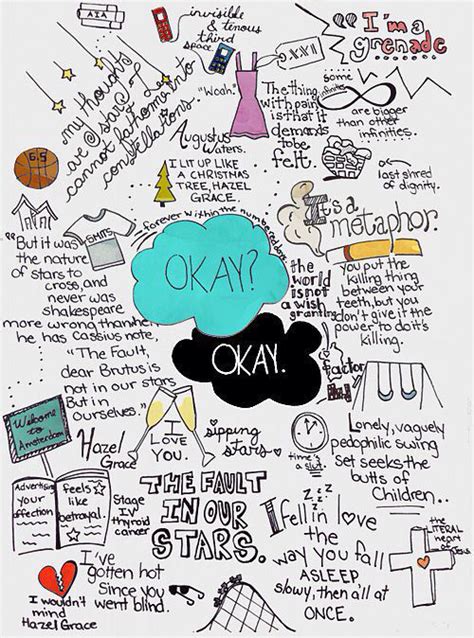 invisible
& tenous
third
space.
I'm a
grenade
5.XXII
my thoughts
are stars I
cannot fathom into
constellations.
"Woah."
Augustus
Waters.
The thing
with pain
is that it
demands
to be
felt.
some
infinites
are bigger
than other
infinities.
6.5
I LIT UP LIKE
A CHRISTMAS
TREE, HAZEL
GRACE.
last shred
of dignity.
SMITS
forever within the numbered days
It's a
metaphor.
"But it was
the nature
of stars to
cross, and
never was
shakespeare
more wrong than when
he has Cassius note,
"The Fault,
dear Brutus is
not in our stars
But in
ourselves."
OKAY?
OKAY.
the
world
is not
a wish
granting
factory
you put the
killing thing
between your
teeth, but you
don't give it the
power to do its
killing.
Welcome
to
Amsterdam
Hazel
Grace
I
Love
You.
sipping
stars
time's
a slut.
Lonely, vaguely
pedophilic swing
set seeks the
butts of
Children..
Advertising
your
affection
feels
like
betrayal.
Stage
IV
thyroid
cancer
THE FAULT
IN OUR
STARS.
z z z
I fell in love
the
way you fall
ASLEEP
slowy, then all at
ONCE.
the
LITERAL
heart
of
Jesus
I've
gotten hot
Since you
went blind.
I wouldn't
mind
Hazel Grace